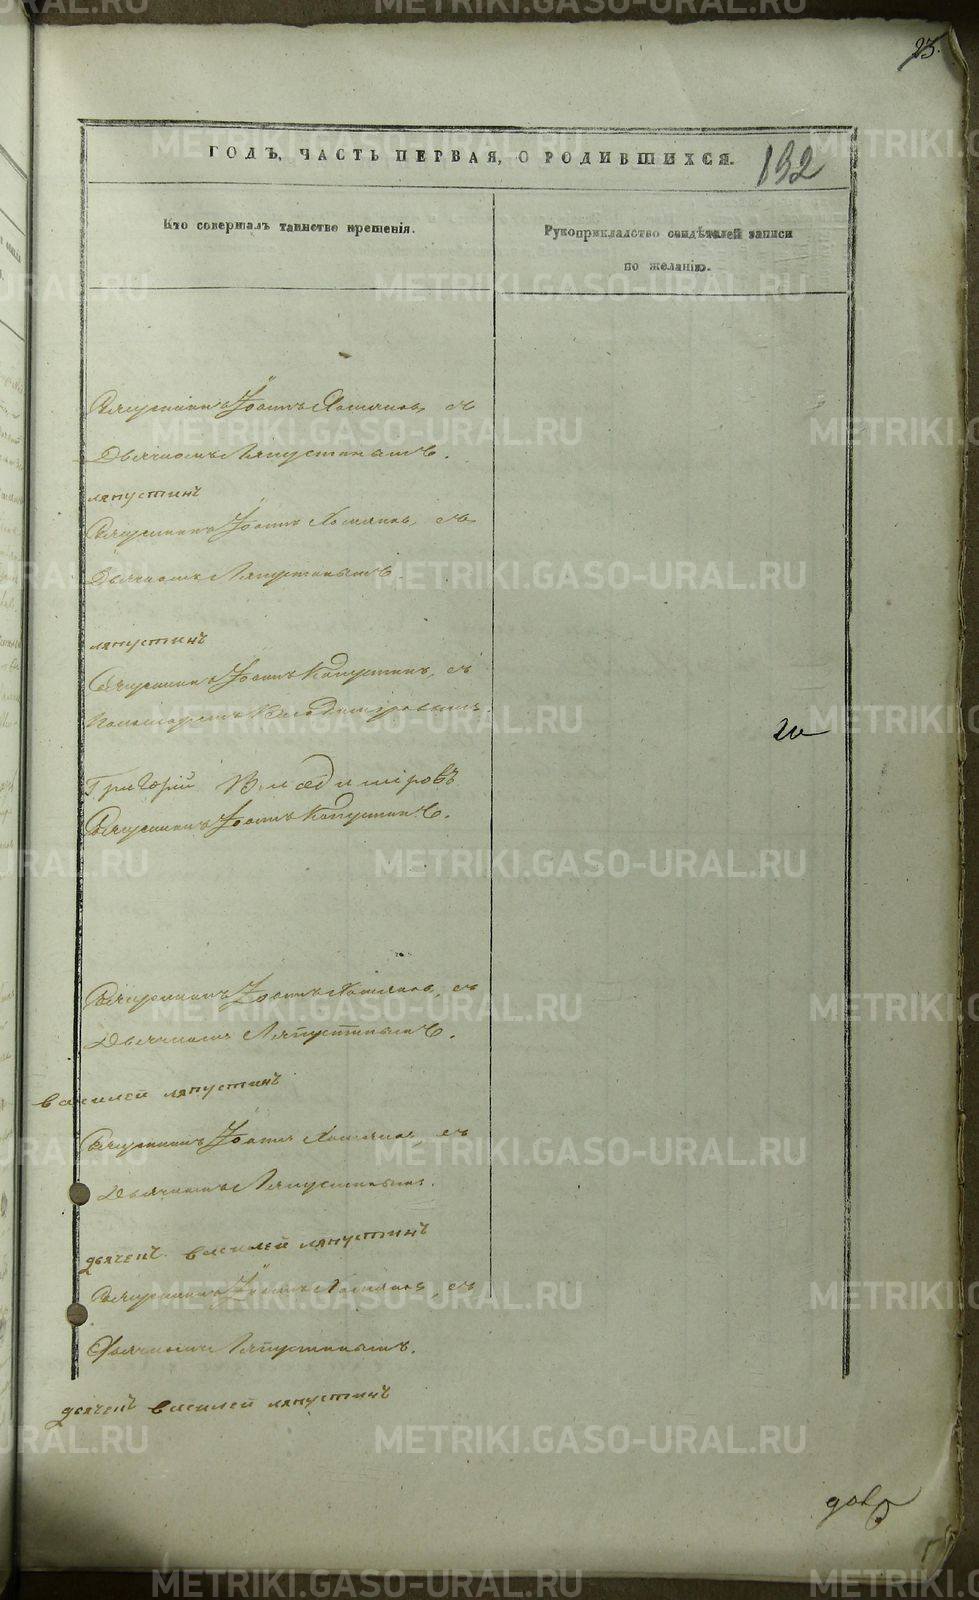 METRIKI.GASO-URAL.RU
23.
ГОДЪ, ЧАСТЬ ПЕРВАЯ, О РОДИВШИХСЯ.
192
Кто совершалъ таинство крещенія.
Рукоприкладство свидѣтелей записи
по желанію.
Священникъ Іоаннъ Хомяковъ, съ
Дьячкомъ Ляпустинымъ.
ляпустинъ
Священникъ Іоаннъ Хомяковъ, съ
Дьячкомъ Ляпустинымъ.
ляпустинъ
Священникъ Іоаннъ Капустинъ, съ
Пономаремъ Владиміровымъ.
Григорій Владиміровъ
Священникъ Іоаннъ Капустинъ.
Священникъ Іоаннъ Хомяковъ, съ
Дьячкомъ Ляпустинымъ.
василей ляпустинъ
Священникъ Іоаннъ Хомяковъ, съ
Дьячкомъ Ляпустинымъ.
дьячекъ василей ляпустинъ
Священникъ Іоаннъ Хомяковъ, съ
Дьячкомъ Ляпустинымъ.
дьячекъ василей ляпустинъ